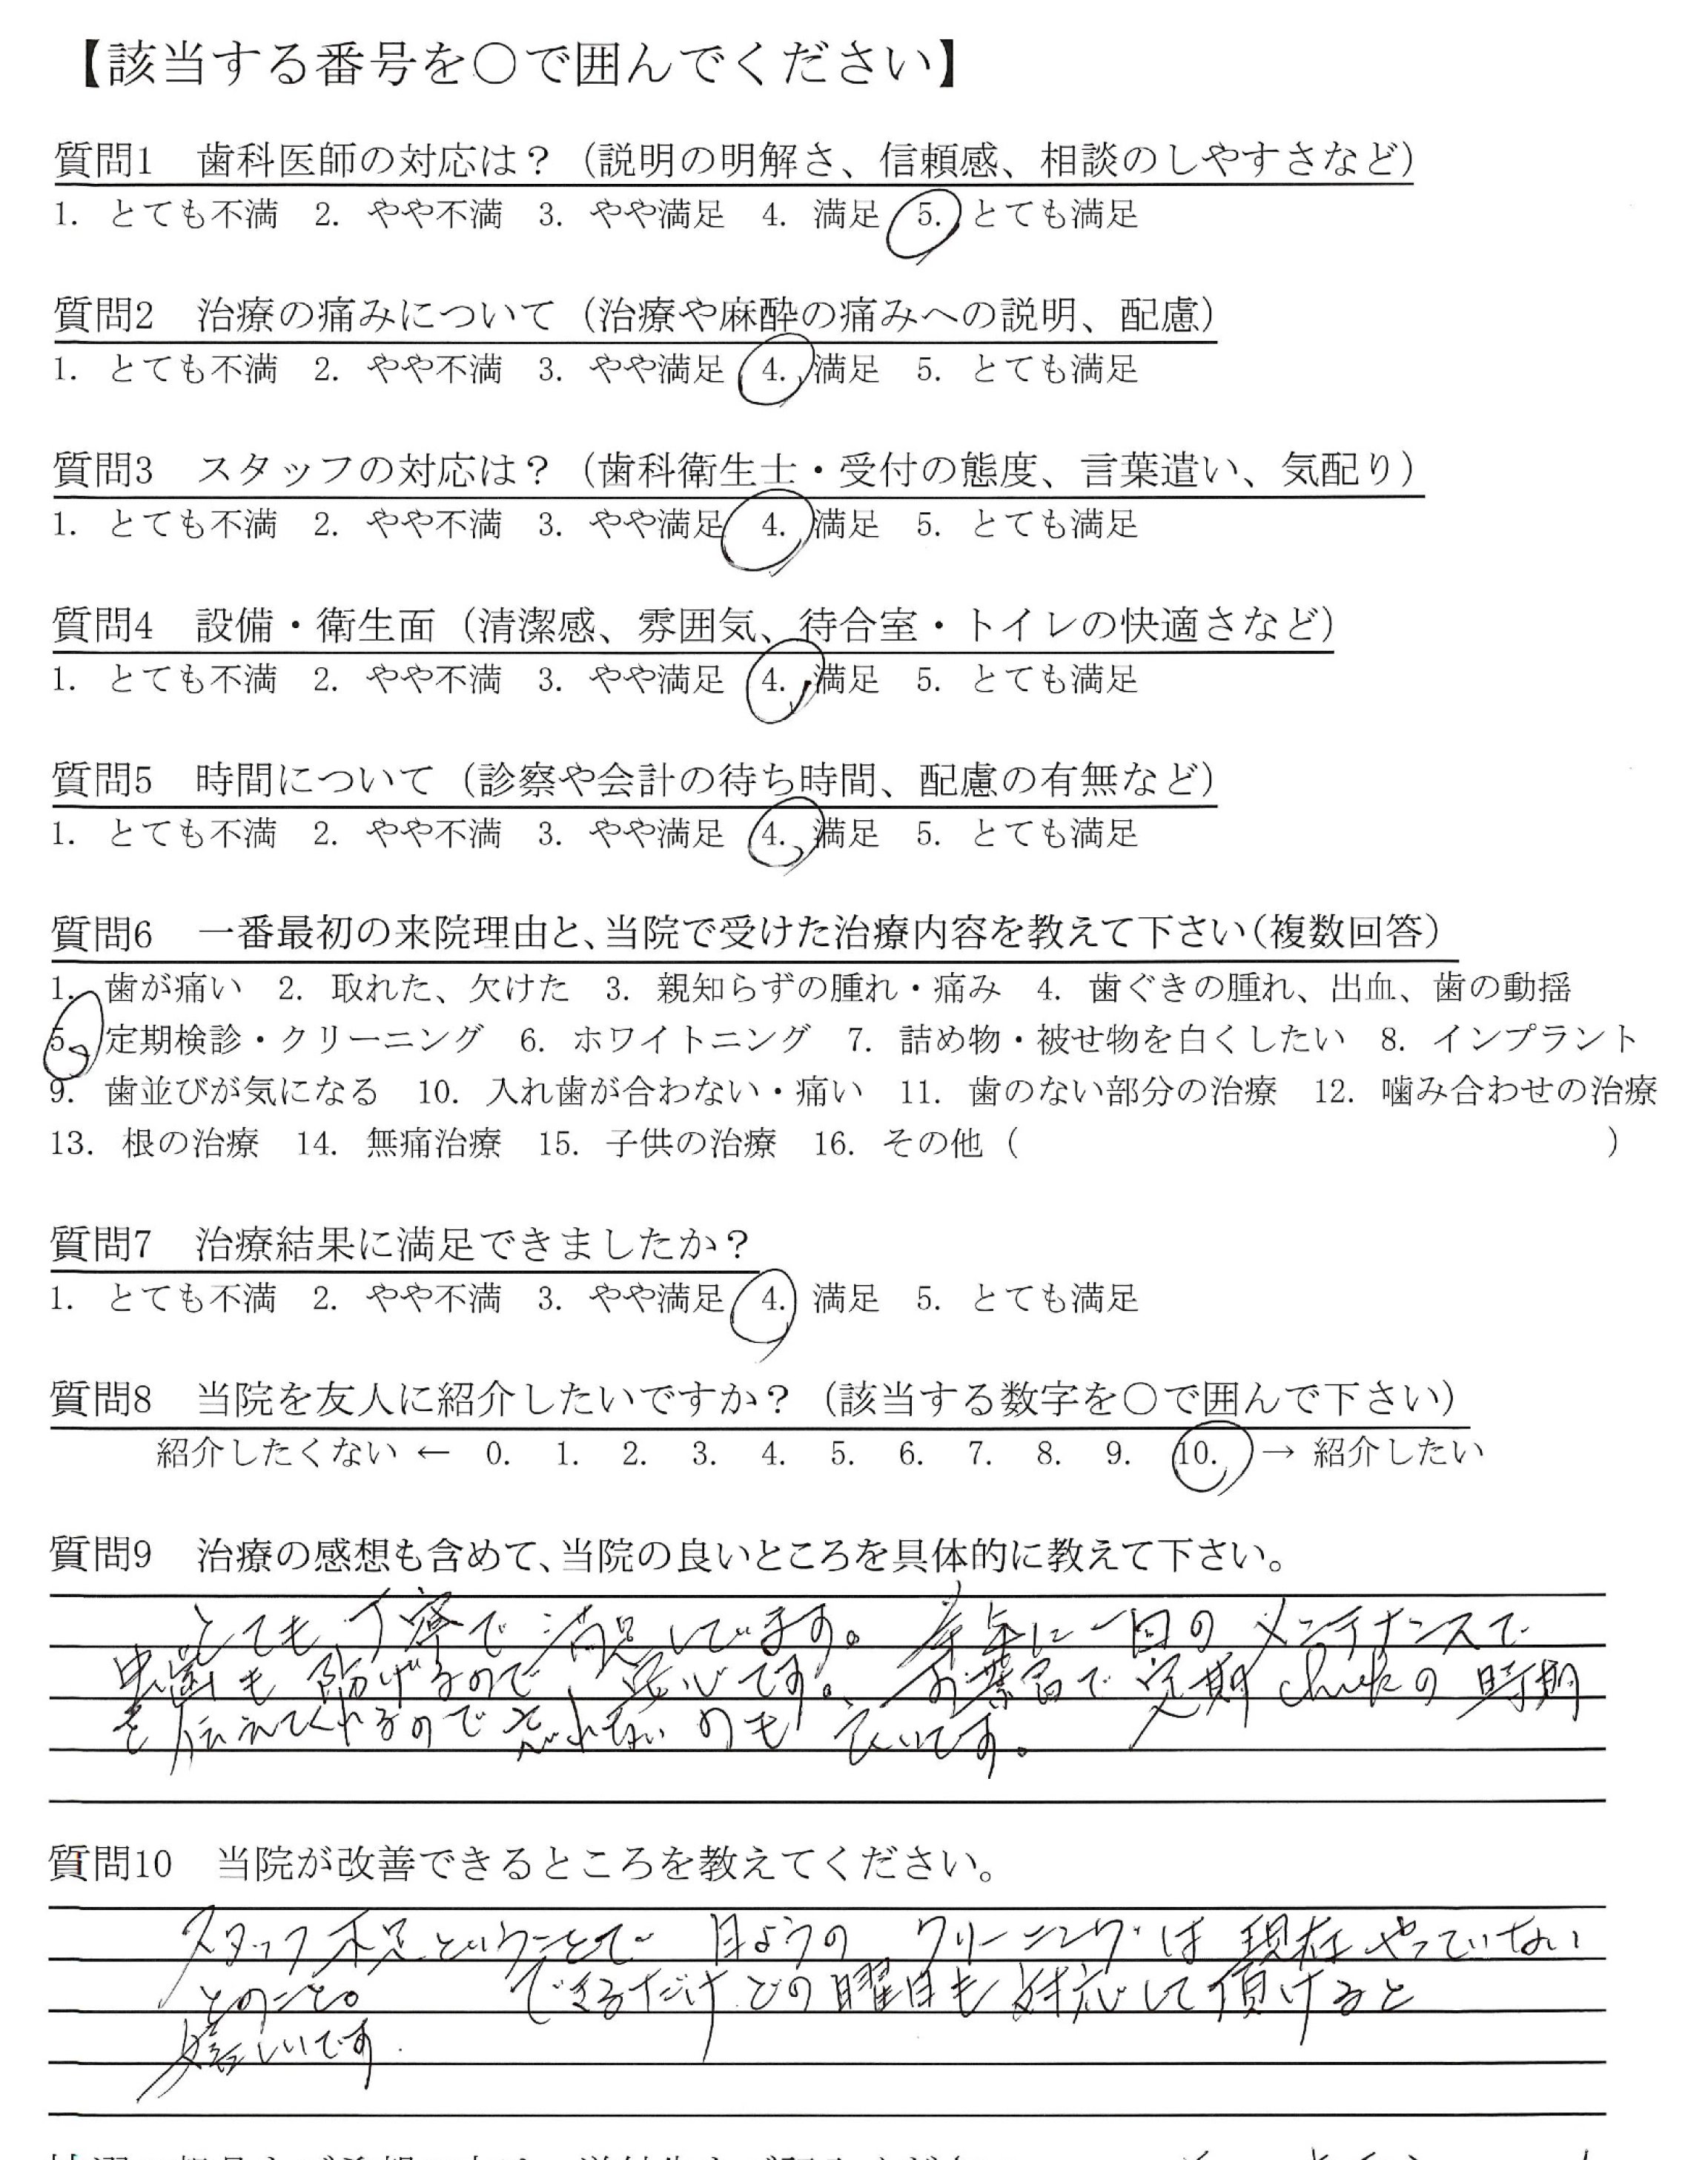 【該当する番号を○で囲んでください】
質問1 歯科医師の対応は？（説明の明解さ、信頼感、相談のしやすさなど）
1. とても不満 2. やや不満 3. やや満足 4. 満足 5. とても満足
質問2 治療の痛みについて（治療や麻酔の痛みへの説明、配慮）
1. とても不満 2. やや不満 3. やや満足 4. 満足 5. とても満足
質問3 スタッフの対応は？（歯科衛生士・受付の態度、言葉遣い、気配り）
1. とても不満 2. やや不満 3. やや満足 4. 満足 5. とても満足
質問4 設備・衛生面（清潔感、雰囲気、待合室・トイレの快適さなど）
1. とても不満 2. やや不満 3. やや満足 4. 満足 5. とても満足
質問5 時間について（診察や会計の待ち時間、配慮の有無など）
1. とても不満 2. やや不満 3. やや満足 4. 満足 5. とても満足
質問6 一番最初の来院理由と、当院で受けた治療内容を教えて下さい（複数回答）
1. 歯が痛い 2. 取れた、欠けた 3. 親知らずの腫れ・痛み 4. 歯ぐきの腫れ、出血、歯の動揺
5. 定期検診・クリーニング 6. ホワイトニング 7. 詰め物・被せ物を白くしたい 8. インプラント
9. 歯並びが気になる 10. 入れ歯が合わない・痛い 11. 歯のない部分の治療 12. 噛み合わせの治療
13. 根の治療 14. 無痛治療 15. 子供の治療 16. その他（ ）
質問7 治療結果に満足できましたか？
1. とても不満 2. やや不満 3. やや満足 4. 満足 5. とても満足
質問8 当院を友人に紹介したいですか？（該当する数字を○で囲んで下さい）
紹介したくない ← 0. 1. 2. 3. 4. 5. 6. 7. 8. 9. 10. → 紹介したい
質問9 治療の感想も含めて、当院の良いところを具体的に教えて下さい。
とても丁寧で満足しています。半年に一回のメンテナンスで
虫歯も防げるので安心です。お葉書で定期checkの時期
を伝えてくれるので忘れないのも良いです。
質問10 当院が改善できるところを教えてください。
スタッフ不足ということで 日ようの クリーニングは現在やっていない
とのこと。 できるだけどの曜日も対応して頂けると
嬉しいです.